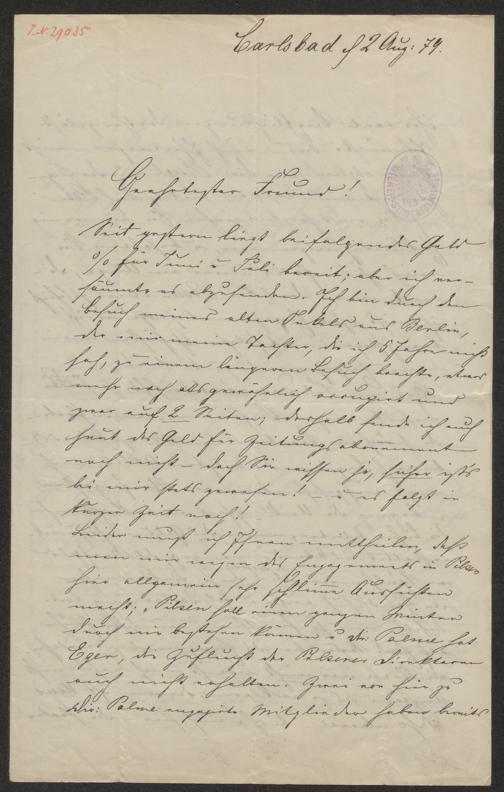 I.N. 29035
Carlsbad d 2 Aug: 79.
Geehrtester Freund!
Seit gestern liegt beifolgendes Geld
% für Juni u Juli bereit; aber ich ver-
säumte es abzusenden. Ich bin durch den
Besuch meines alten Onkels aus Berlin,
der mir meine Tochter, die ich 5 Jahre nicht
sah, zu einem längeren Besuch brachte, etwas
mehr noch als gewöhnlich occupirt und
zwar auf 2 Seiten; deshalb sende ich auch
heut das Geld für Zeitungsabonnement
noch nicht – doch Sie wissen ja, sicher ist's
bei mir stets gewesen! u es folgt in
kurzer Zeit nach!
Leider muß ich Ihnen mittheilen, daß
man mir wegen des Engagements in Pilsen
hier allgemein sehr schlimme Aussichten
macht; Pilsen soll einen ganzen Winter
durch nie bestehen können u Dir: Palme hat
Eger, die Zuflucht der Pilsener Direktoren
auch nicht erhalten. Zwei von hier zu
Dir: Palme engagirte Mitglieder haben bereits